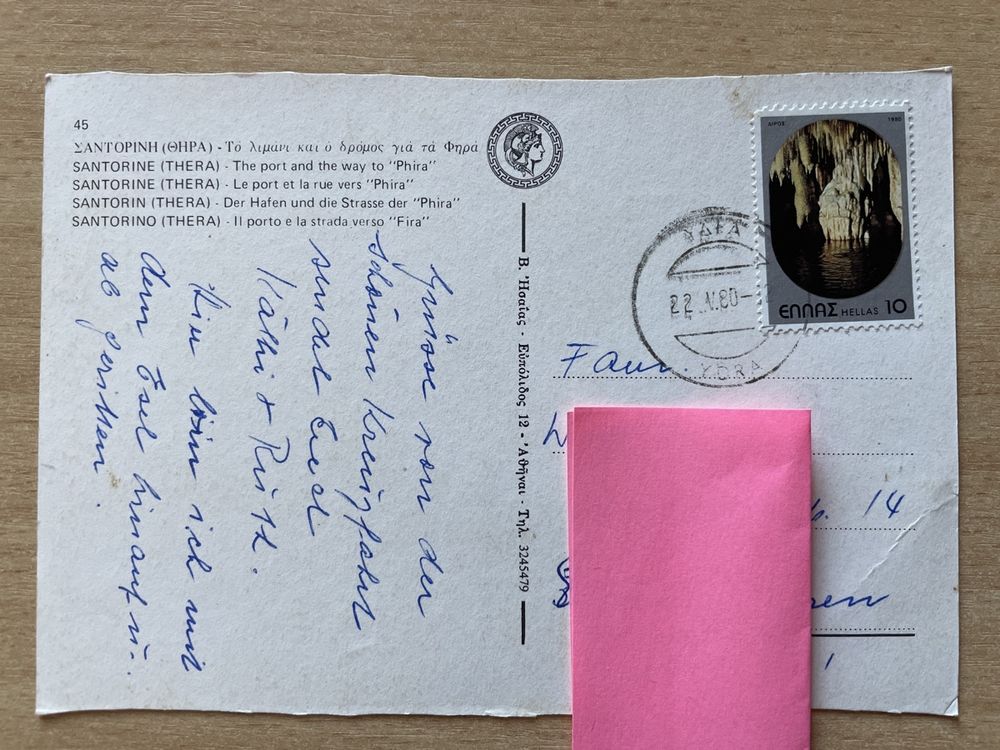 45
ΣΑΝΤΟΡΙΝΗ (ΘΗΡΑ) - Τό λιμάνι καί ὁ δρόμος γιά τά Φηρά
SANTORINE (THERA) - The port and the way to "Phira"
SANTORINE (THERA) - Le port et la rue vers "Phira"
SANTORIN (THERA) - Der Hafen und die Strasse der "Phira"
SANTORINO (THERA) - Il porto e la strada verso "Fira"
Grüsse von der
schönen Kreuzfahrt
sendet Euch
Käthi + Ruth.
Hier bin ich mit
dem Esel hinauf u.
ab geritten.
Β. Ἡσαΐας - Εὐπόλιδος 12 - Ἀθῆναι - Τηλ. 3245479
ΔΙΡΟΣ 1980
ΕΛΛΑΣ HELLAS 10
ΥΔΡΑ
22. .80
YDRA
Fam.
14